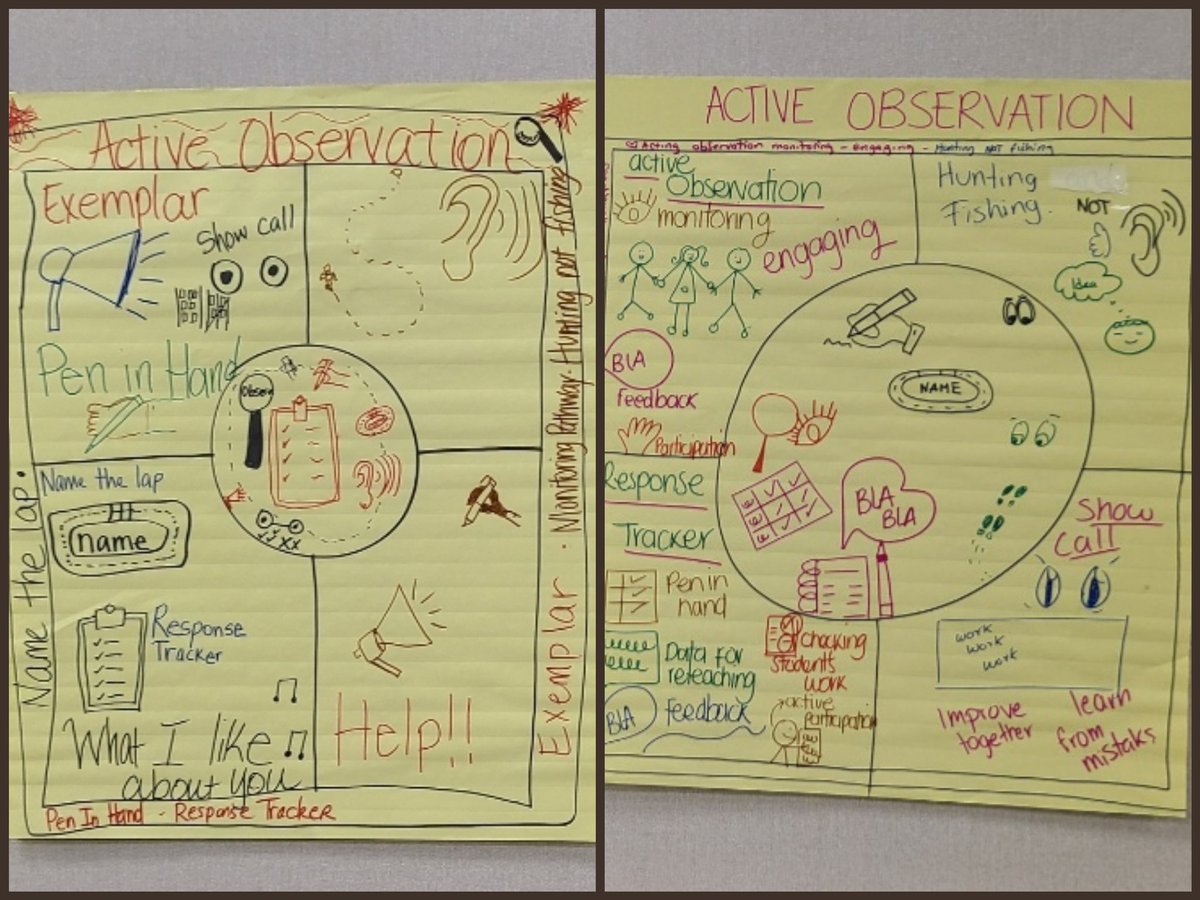 Active Observation
Exemplar
Show call
Pen in Hand
Observe
Name the lap
name
Response
Tracker
What I like
about you
Help!!
Name the lap.
Exemplar . Monitoring Pathway. Hunting not fishing
Pen In Hand - Response Tracker
ACTIVE OBSERVATION
Acting observation monitoring - engaging - Hunting NOT fishing
active
Observation
monitoring
engaging
BLA
feedback
Participation
Response
Tracker
Pen in
hand
Data for
reteaching
BLA
feedback
checking
students
work
active
participation
Hunting
Fishing.
NOT
Idea
NAME
BLA
BLA
Show
Call
work
work
work
Improve
together
learn
from
mistaks